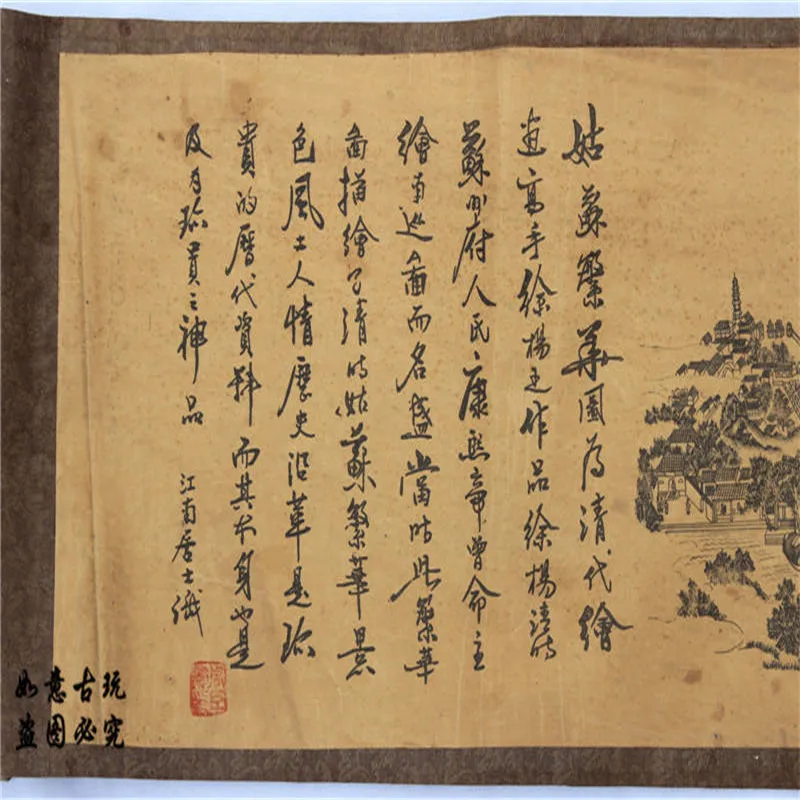 姑蘇繁華圖為清代繪
畫高手徐楊之作品徐楊清時
蘇州府人民康熙帝曾命主
繪南巡圖而名盛當時此繁華
圖描繪了清時姑蘇繁華景
色風土人情歷史沿革是珍
貴的曆代資料而其本身也是
及為珍貴之神品
江南居士識
如意古玩
盗图必究